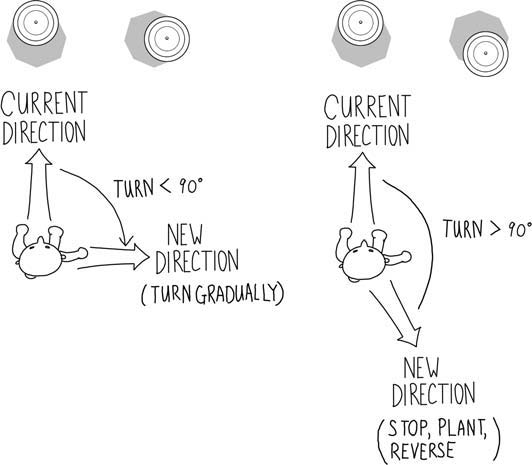 CURRENT
DIRECTION
TURN < 90°
NEW
DIRECTION
(TURN GRADUALLY)
CURRENT
DIRECTION
TURN > 90°
NEW
DIRECTION
(STOP, PLANT,
REVERSE)